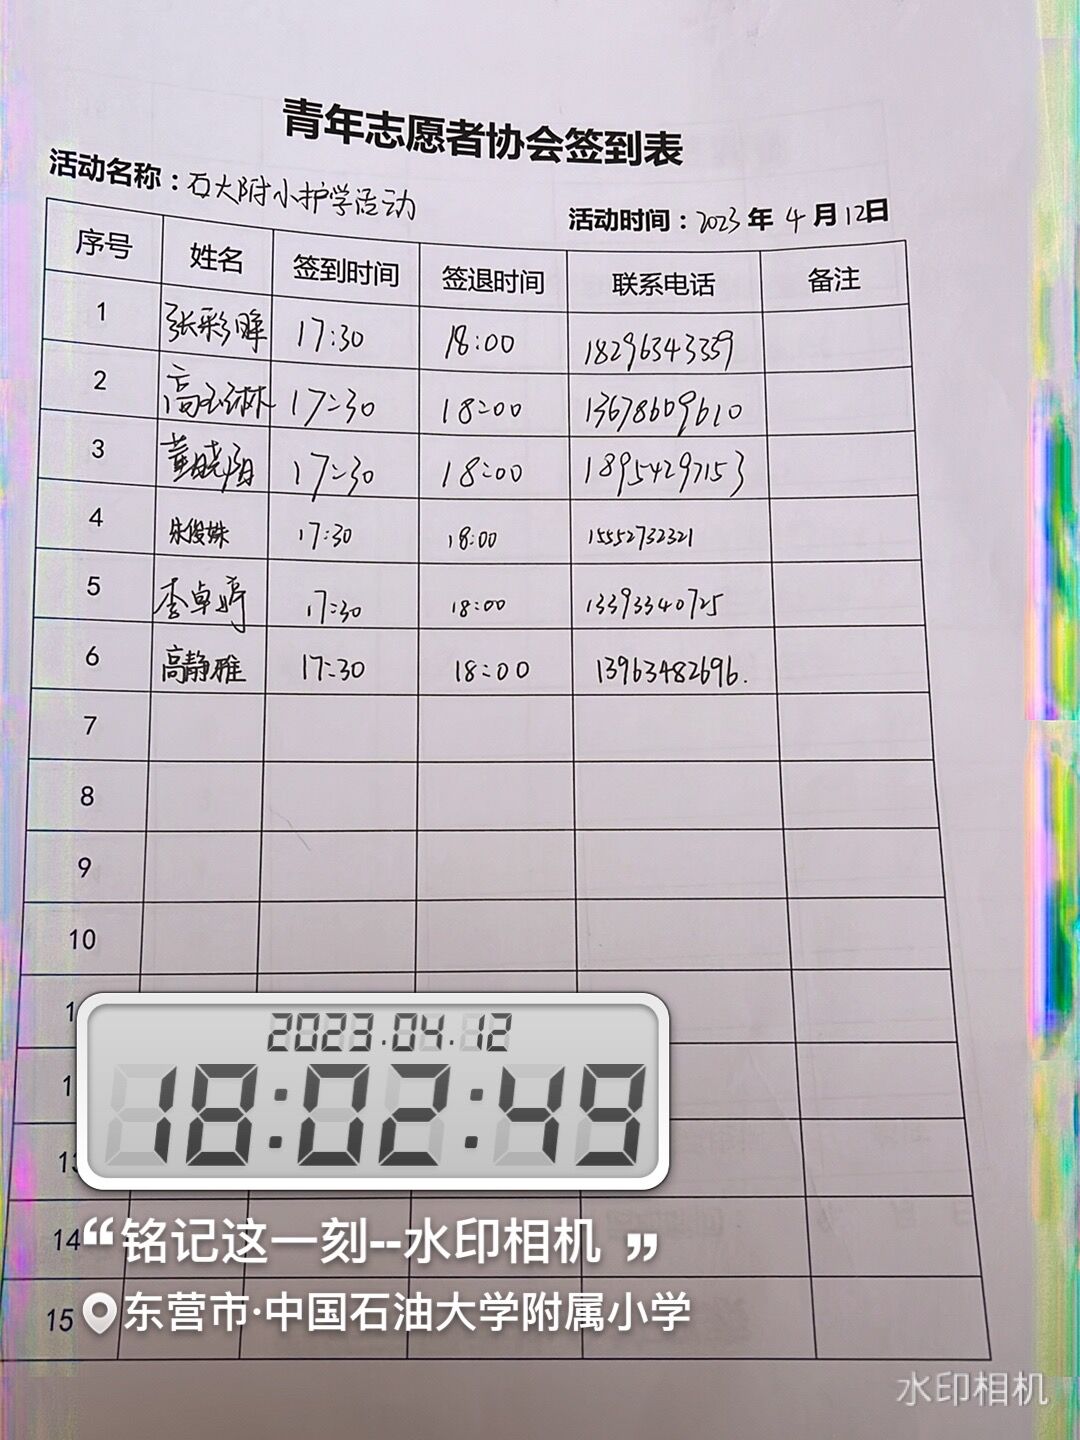 青年志愿者协会签到表
活动名称：石大附小护学活动
活动时间：2023年4月12日
序号 姓名 签到时间 签退时间 联系电话 备注
1 张彩晖 17:30 18:00 18296343359
2 高玉琳 17:30 18:00 13678609610
3 董晓阳 17:30 18:00 18954297153
4 朱俊姝 17:30 18:00 15552732321
5 李卓婷 17:30 18:00 13393340725
6 高静雅 17:30 18:00 13963482696.
7
8
9
10
2023.04.12
18:02:49
13
14
“铭记这一刻--水印相机”
15
东营市·中国石油大学附属小学
水印相机